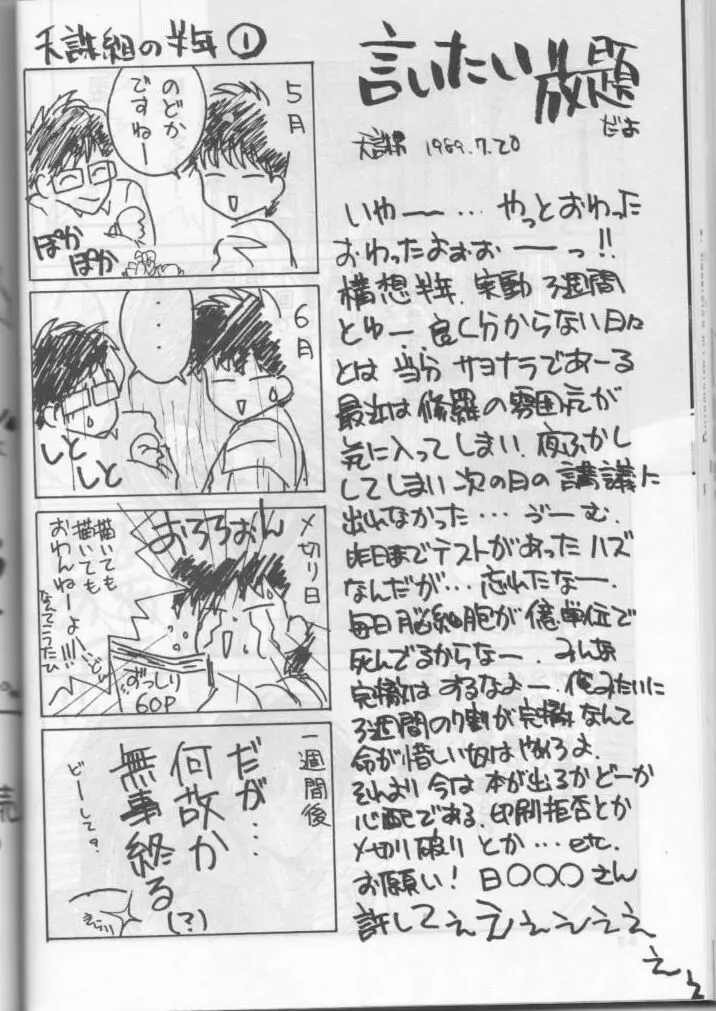 天誅組の半年①
5月
のどか
ですねー
ぽか
ぽか
6月
・・・
しと
しと
〆切り日
おろろぉん
描いても
描いても
おわんねーよー!!!
なんてこったい
ずっしり
60P
一週間後
だが…
何故か
無事終る
(?)
どーして?
言いたい放題
だよ
天誅組 1989.7.20
いやー ー … やっとおわった
おわったおぉぉ ー ー っ!!
構想半年、実動3週間
とゆー、良く分からない日々
とは 当分 サヨナラであーる
最近は修羅の雰囲気が
気に入ってしまい、夜ふかし
してしまい次の日の講議に
出れなかった… うーむ、
昨日までテストがあったハズ
なんだが… 忘れたなー、
毎日脳細胞が億単位で
死んでるからなー、みんな
完徹はするなよー、俺みたいに
3週間の9割が完徹なんて
命が惜しい奴はやめろよ、
それより今は本が出るかどーか
心配である、印刷拒否とか
〆切り破りとか…etc.
お願い! 日〇〇〇さん
許してぇえぇぇぇぇ
ぇぇ